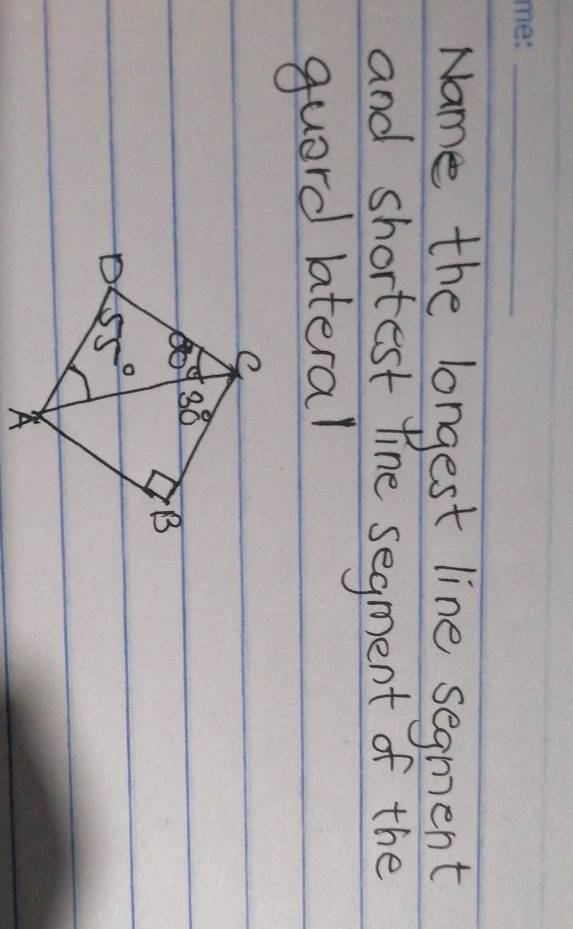 me:
Name the longest line segment
and shortest line segment of the
quard lateral
C
60° 30°
D 55° B
A